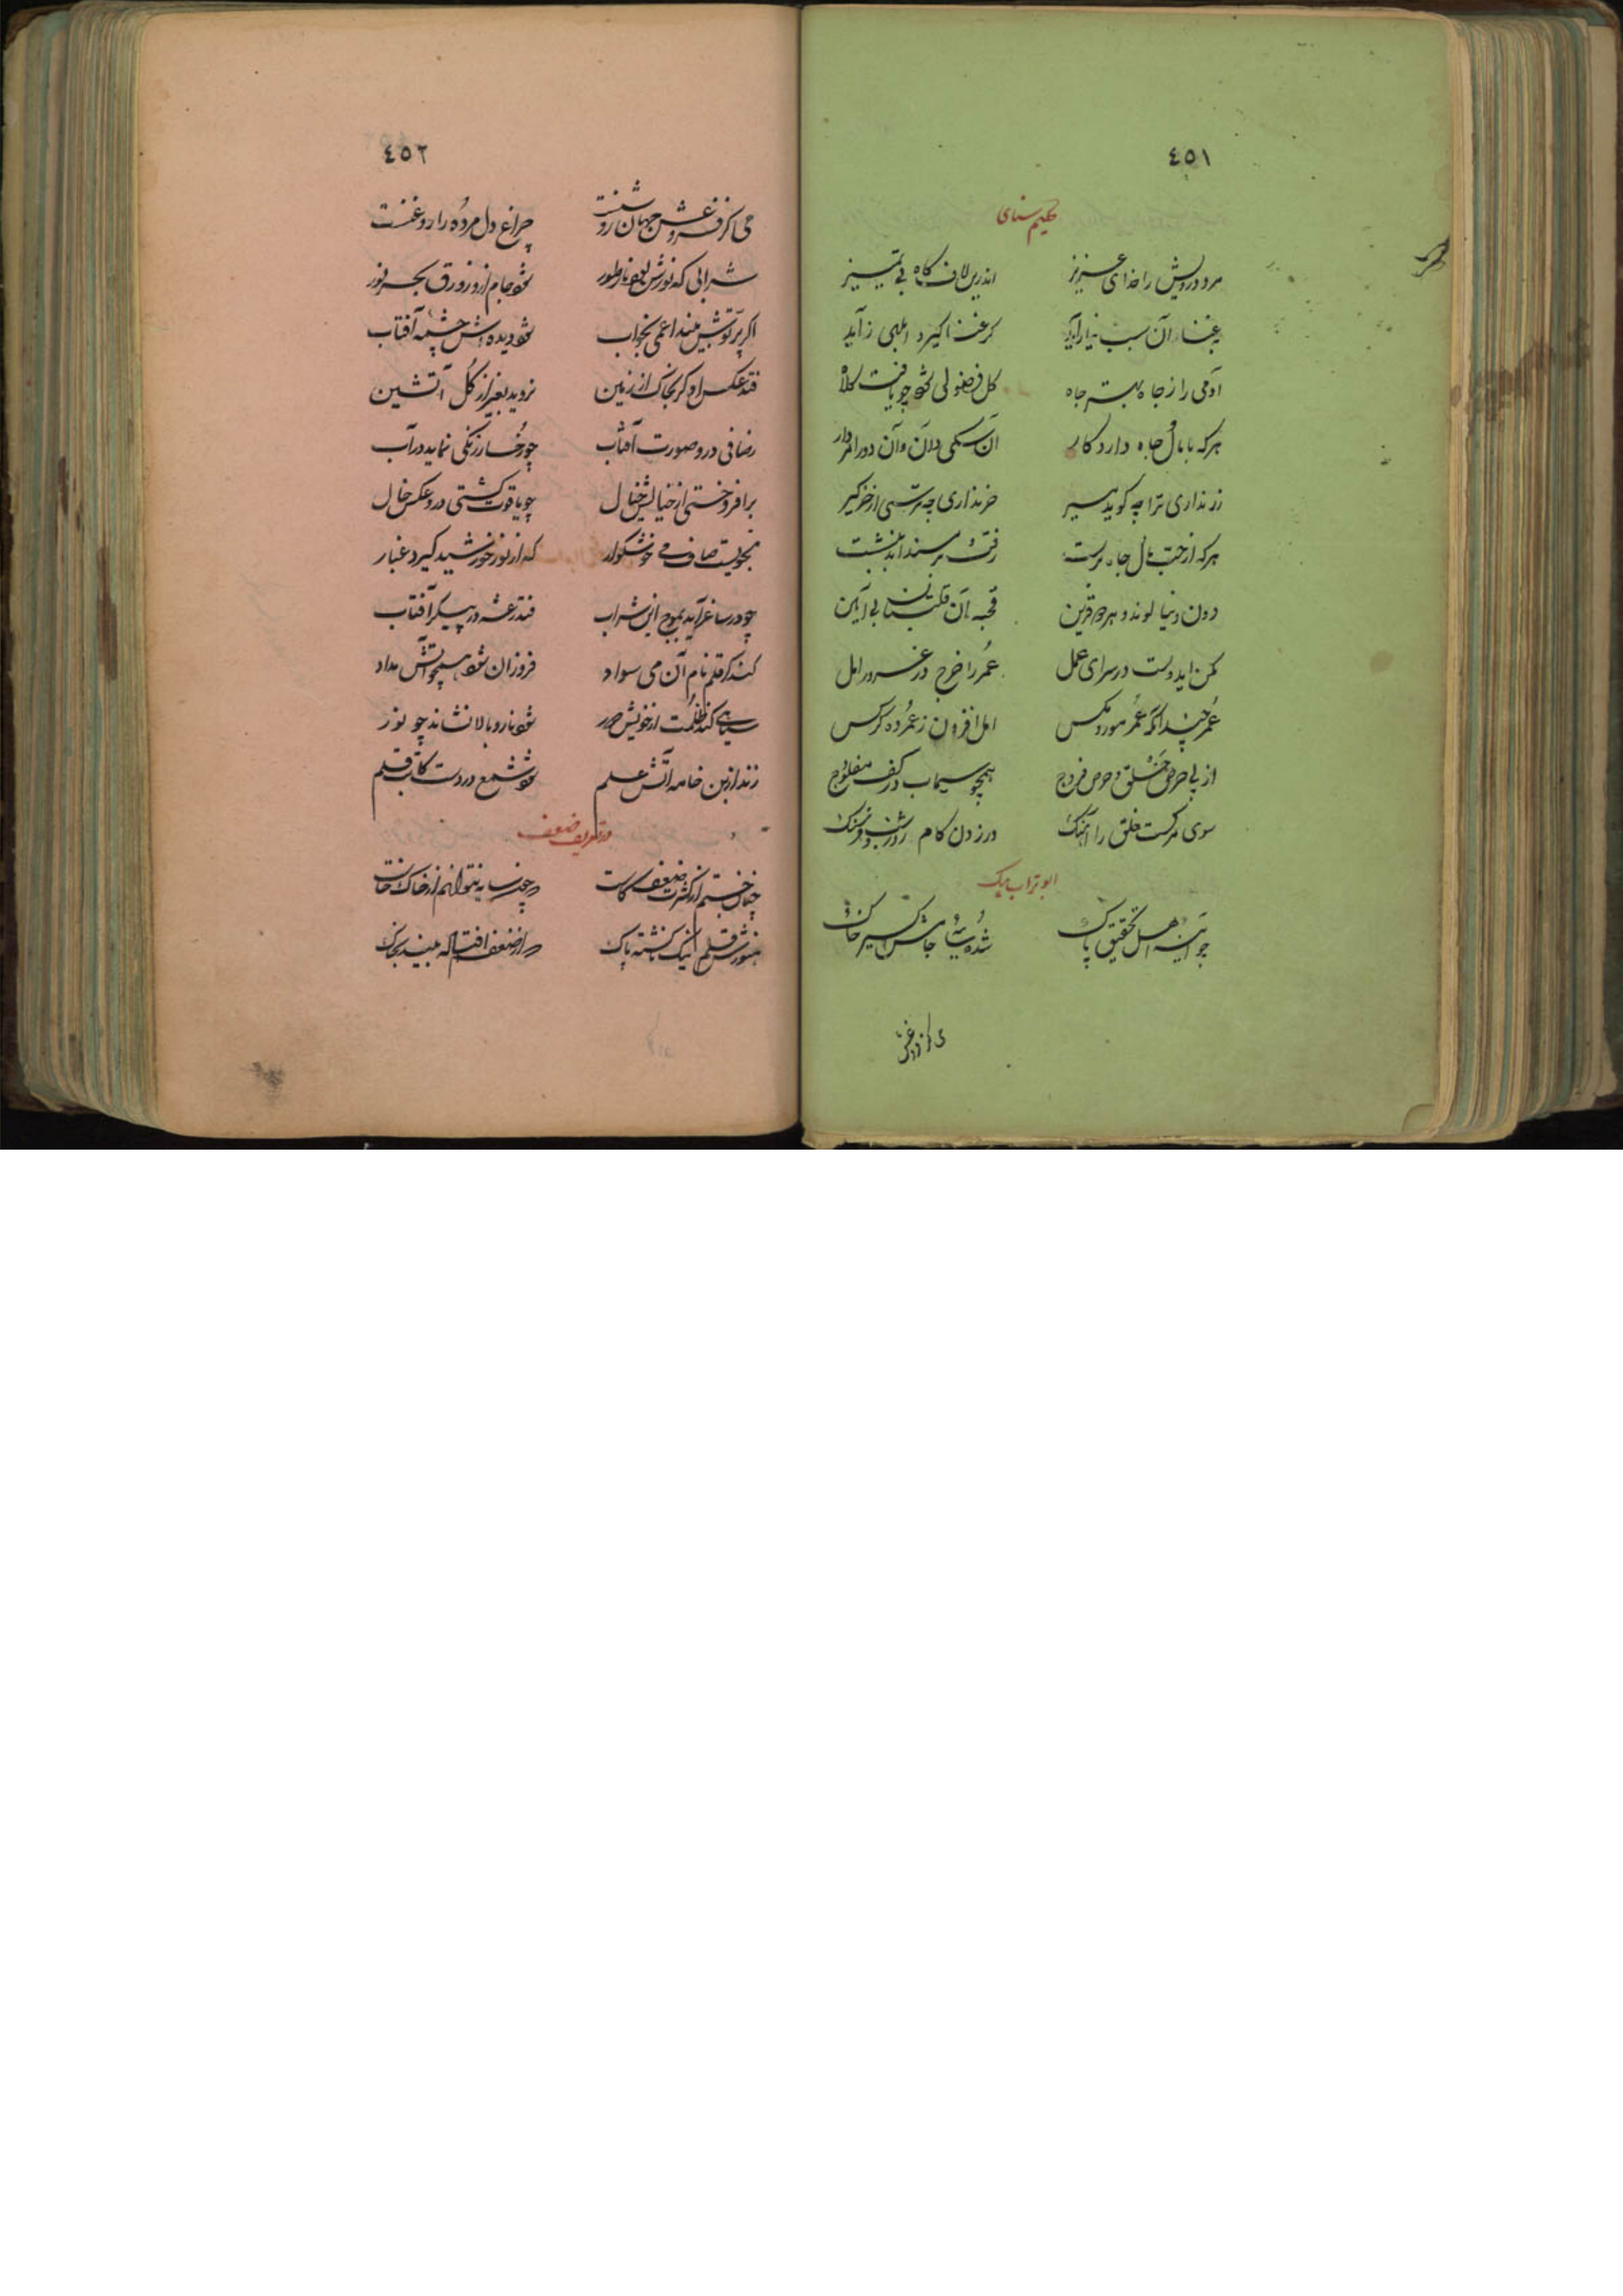 ٤٥١
حکیم سنای
مرد درویش را خدای عزیز اندرین لاف کاه بی تمیز
غنا آن سبب کر غنا کیرد ابلهی زآید
آدمی را ز جاه بهتر چاه کل فضولی شود چو یافت کلاه
هرکه با مال و جاه دارد کار آن سکی دان و آن دو را مردار
زر نداری ترا چه کوید میر خر نداری چه ترسی از خرکیر
هرکه از حب مال جاه پرست رفت بر مسند
درون دنیا لوند و هرزه قرین قحبه آن قلتبان بی آیین
مکن ایدوست در سرای عمل عمر را خرج در غرور امل
عمر چند آنکه عمر مور و مکس امل افزون ز عمر ده کرکس
از پی حرص حلق و حرص فروج همچو سیماب در کف مفلوج
سوی مرکست خلق را آهنک در زدن کام روز و شب فرسنک
ابو تراب بیک
جو آیینه اهل تحقیق پاک شده خاک
می کز فروغش
٤٥٢
می کز فروغش جهان روشنست چراغ دل مرده را روغنست
شرابی که نورش بود نار طور شود جام ازو زورق بحر نور
اکر پرتوش بیند اعمی بخواب شود دیده اش چشمه آفتاب
فتد عکس او کر بخاک از زمین نروید بغیر از کل آتشین
ز صافی درو صورت آفتاب چو رخسار زنکی نماید در آب
برافروختی از خیالش خیال چو یاقوت کشتی درو عکس خال
بنحویست صاف می خوشکوار که از نور خورشید کیرد غبار
چو در ساغر آید بموج این شراب فتد رعشه در پیکر آفتاب
کند کر قلم نام آن می سواد فروزان شود همچو آتش مداد
سیاهی کند ظلمت از خویش دور شود نار و بالا نشاند چو نور
زند ازین خامه آتش علم شود شمع در دست کاتب قلم
در تعریف ضعف
چنان خستم از کثرت ضعف که چون سایه نتوانم از خاک خاست
هنوزش قلم نیک ناکشته پاک که از ضعف افتاد بخاک